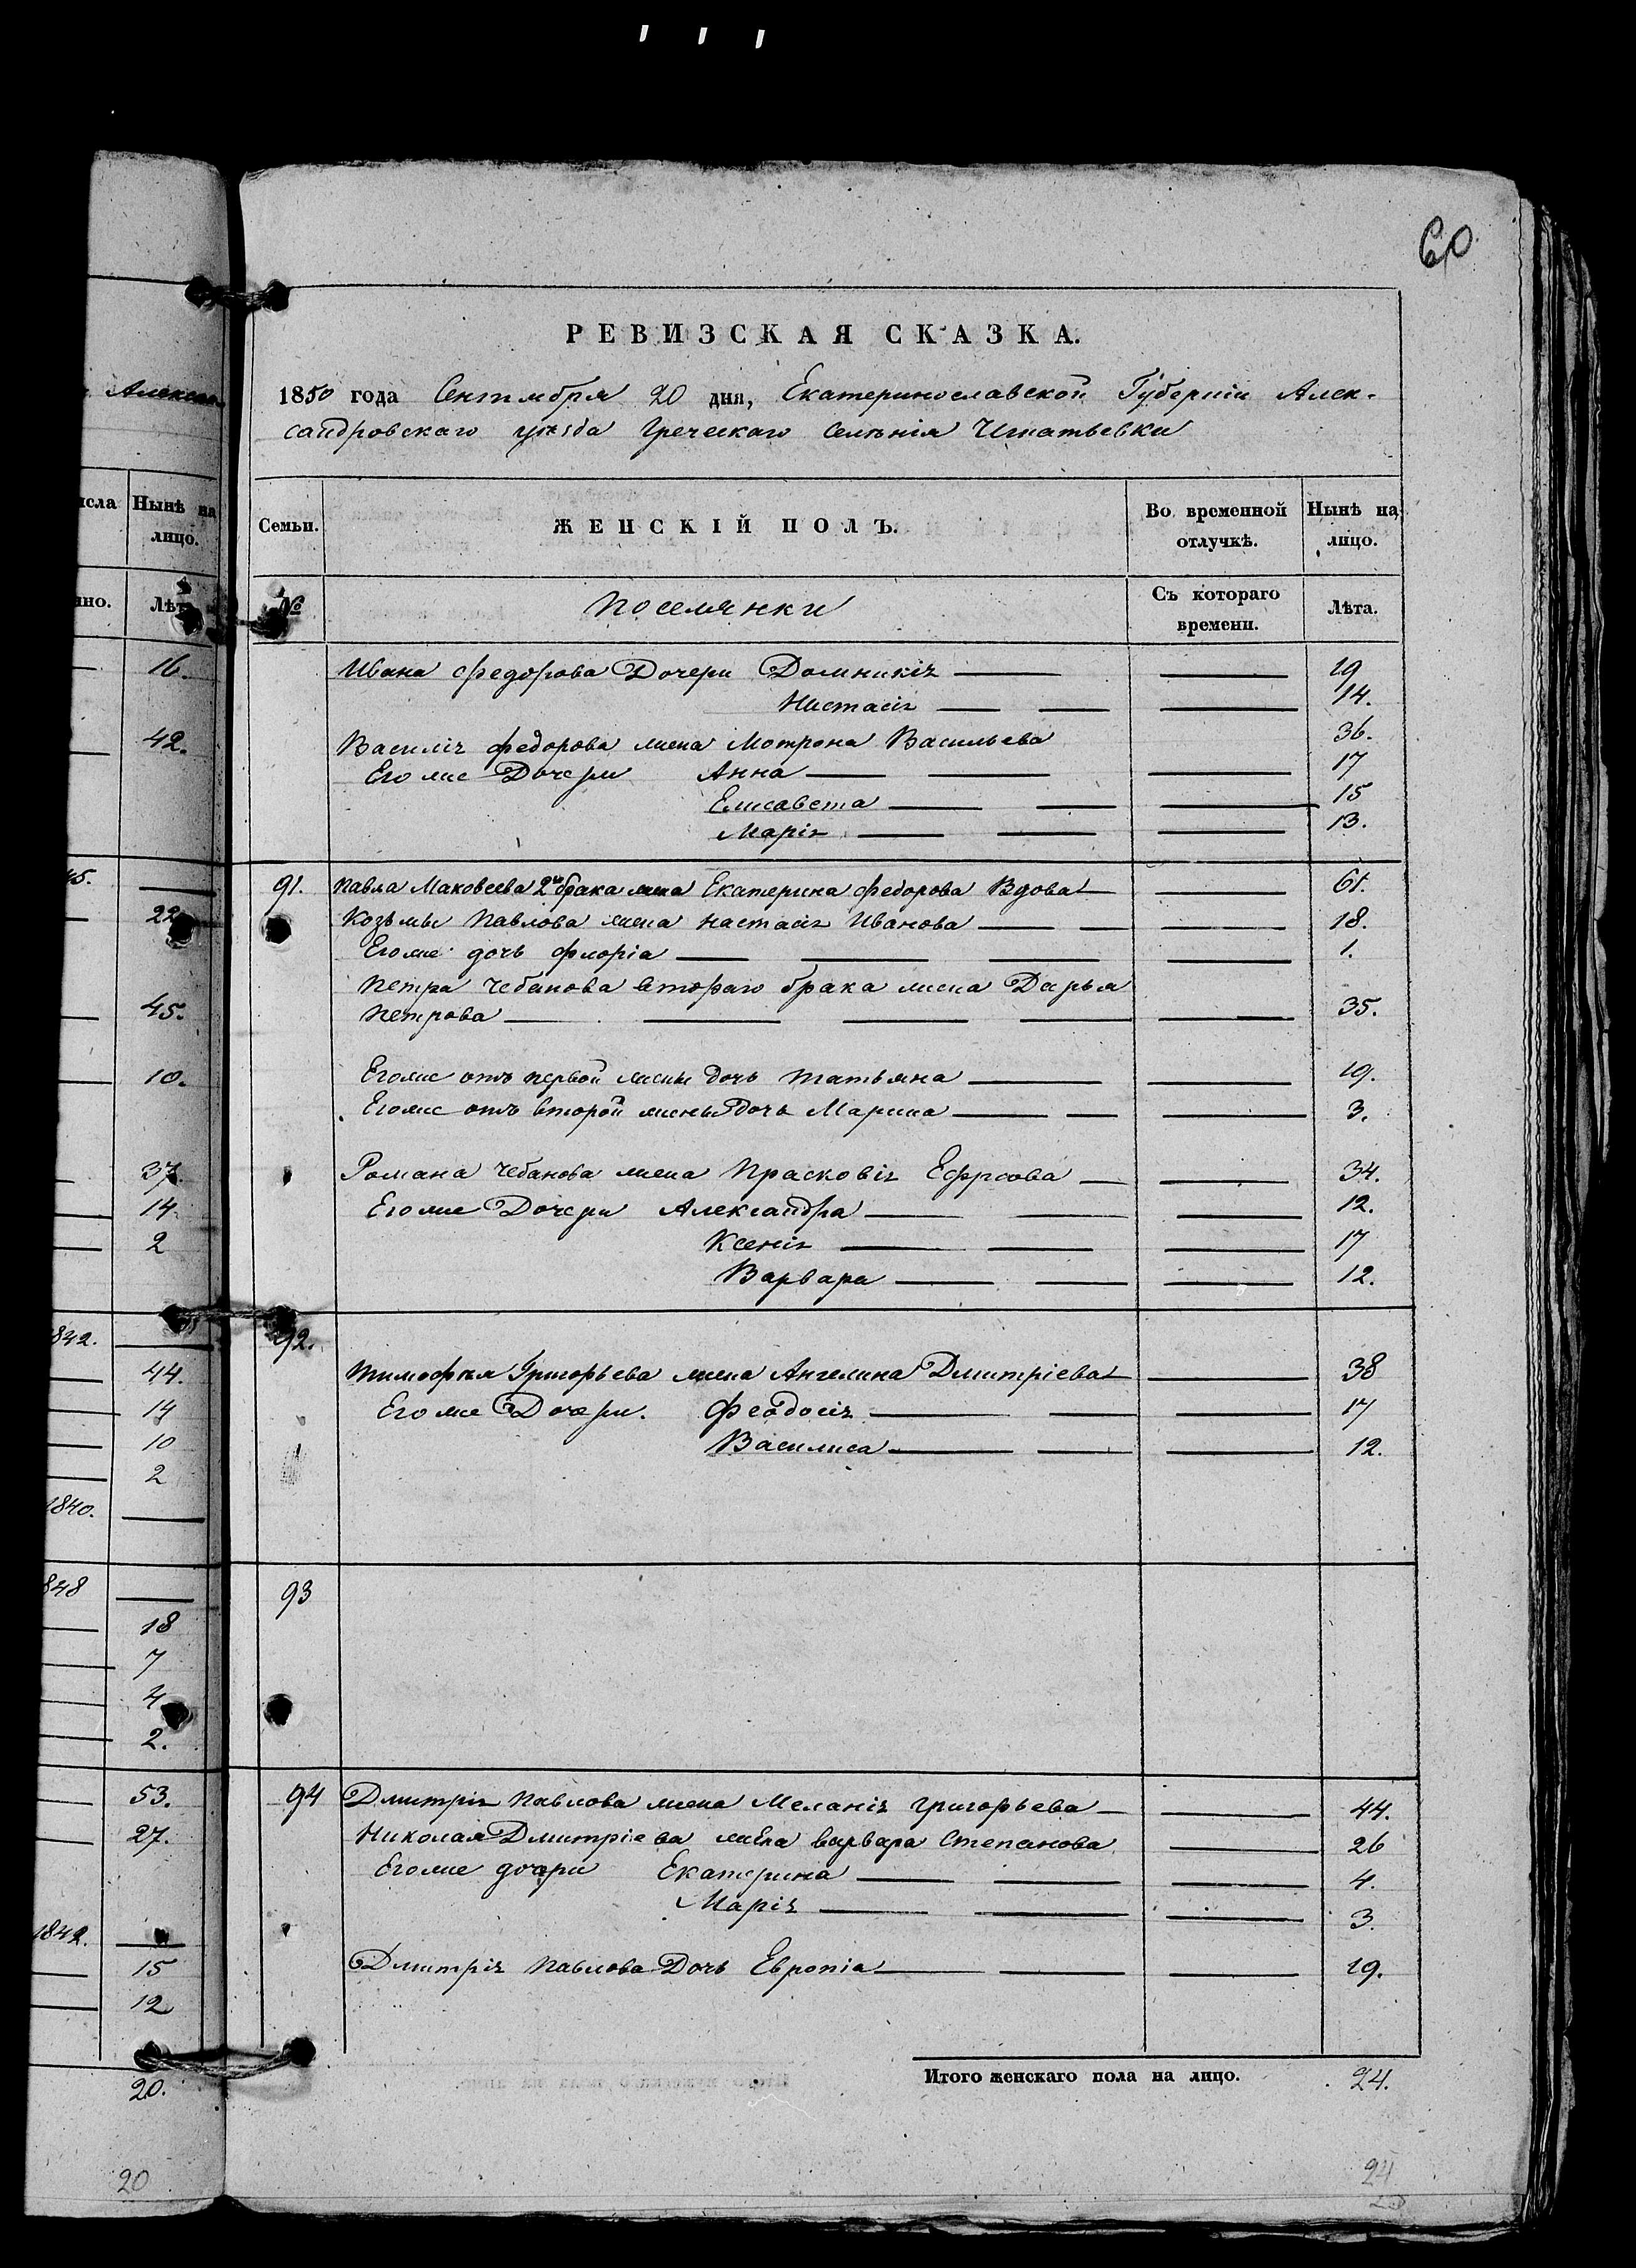 60
РЕВИЗСКАЯ СКАЗКА.
1850 года Сентября 20 дня, Екатеринославской Губерніи Алек-
сандровскаго уѣзда Греческаго Селѣнія Игнатьевки
Алекса
исла Нынѣ на лицо.
Семьи. ЖЕНСКІЙ ПОЛЪ. Во временной отлучкѣ. Нынѣ на лицо.
нно. Лѣта
№ Поселянки Съ котораго времени. Лѣта.
16.
42.
45.
22
45.
10.
37.
14.
2
842.
44.
14
10
2
1840.
848
18
7
4
2.
53.
27.
1842.
15
12
20.
20
Ивана Федорова Дочери Домникія 19
Настасія 14.
Василія Федорова жена Мотрона Васильева 36.
Его же Дочери Анна 17
Елисавета 15
Марія 13.
91. Павла Маковеева 2го брака жена Екатерина Федорова Вдова 61.
Козьмы Павлова жена Настасія Иванова 18.
Его же дочь Флорія 1.
Петра Чебанова втораго брака жена Дарья
Петрова 35.
Его же отъ первой жены дочь Татьяна 19.
Его же отъ второй жены дочь Марина 3.
Романа Чебанова жена Прасковія 34.
Его же Дочери Александра 12.
Ксенія 17
Варвара 12.
92.
Тимофѣя Григорьева жена Ангелина Дмитріева 38
Его же Дочери. Феодосія 17
Василиса 12.
93
94 Дмитрія Павлова жена Меланія Григорьева 44.
Николая Дмитріева жена Варвара Степанова 26
Его же дочери Екатерина 4.
Марія 3.
Дмитрія Павлова Дочь Европіа 19.
Итого женскаго пола на лицо. 24.
24